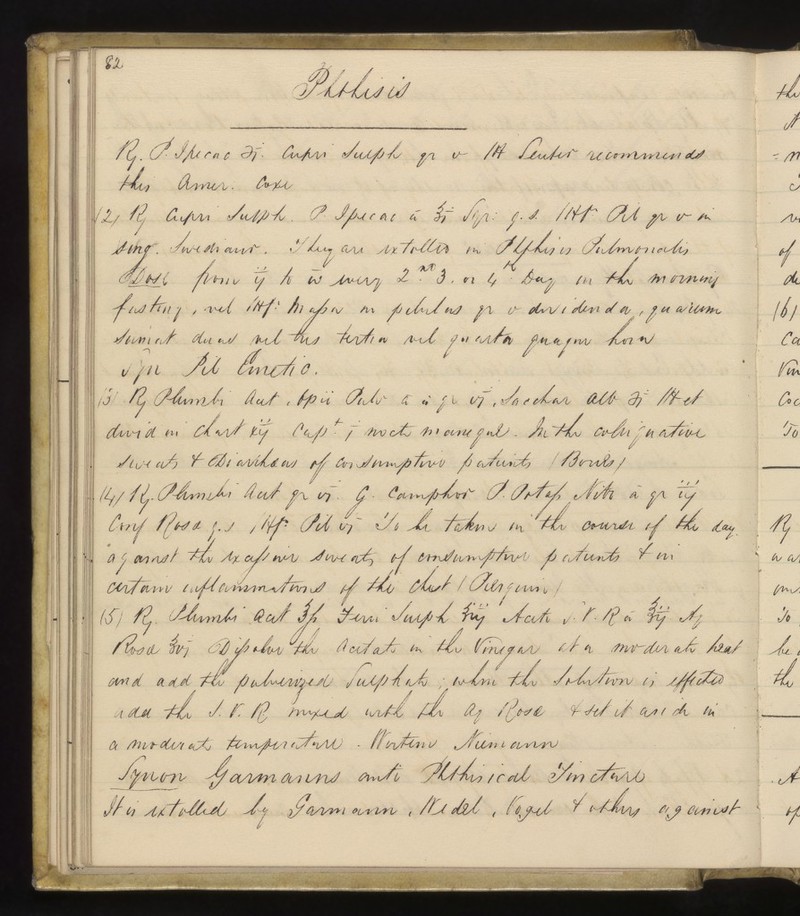 82
Phthisis
R. P. Ipecac ʒi. Cupri Sulph gr v M Senter recommends
this Amer. Coxe
(2) R Cupri Sulph. P Ipecac ā Syr: q.s. Ft Pil gr v in
sing. Swediaur. They are extolled in Phthisis Pulmonalis
Dose from ij to iv every 2nd 3. or 4th Day in the morning
fasting, vel Ft: Massa in pilulas gr v dividenda, quarum
sumat duas vel tres tertia vel quarta quaque hora
Syn Pil Emetic.
(3) R Plumbi Acet, Opii Pulv a a gr vi, Sacchar Alb ʒi M et
divid in chart xij Capt i nocte maneque. In the colliquative
sweats & Diarrhœas of consumptive patients (Bories)
(4) R. Plumbi Acet gr vi. G. Camphor P. Potass Nitr ā gr iij
Conf Rosæ q.s, Ft: Pil vi To be taken in the course of the day
against the excessive sweats of consumptive patients & in
certain inflammations of the chest (Pierquin)
(5) R. Plumbi Acet ℥ß Ferri Sulph Aceti S.V.R ā Aq
Rosæ Dissolve the Acetate in the Vinegar at a moderate heat
and add the pulverized Sulphate; when the Solution is effected
add the S.V.R mixed with the Aq Rosæ & set it aside in
a moderate temperature. Niemann
Synon Garmanns anti Phthisical Tincture
It is extolled by Garmann, Nedel, Vogel & others against